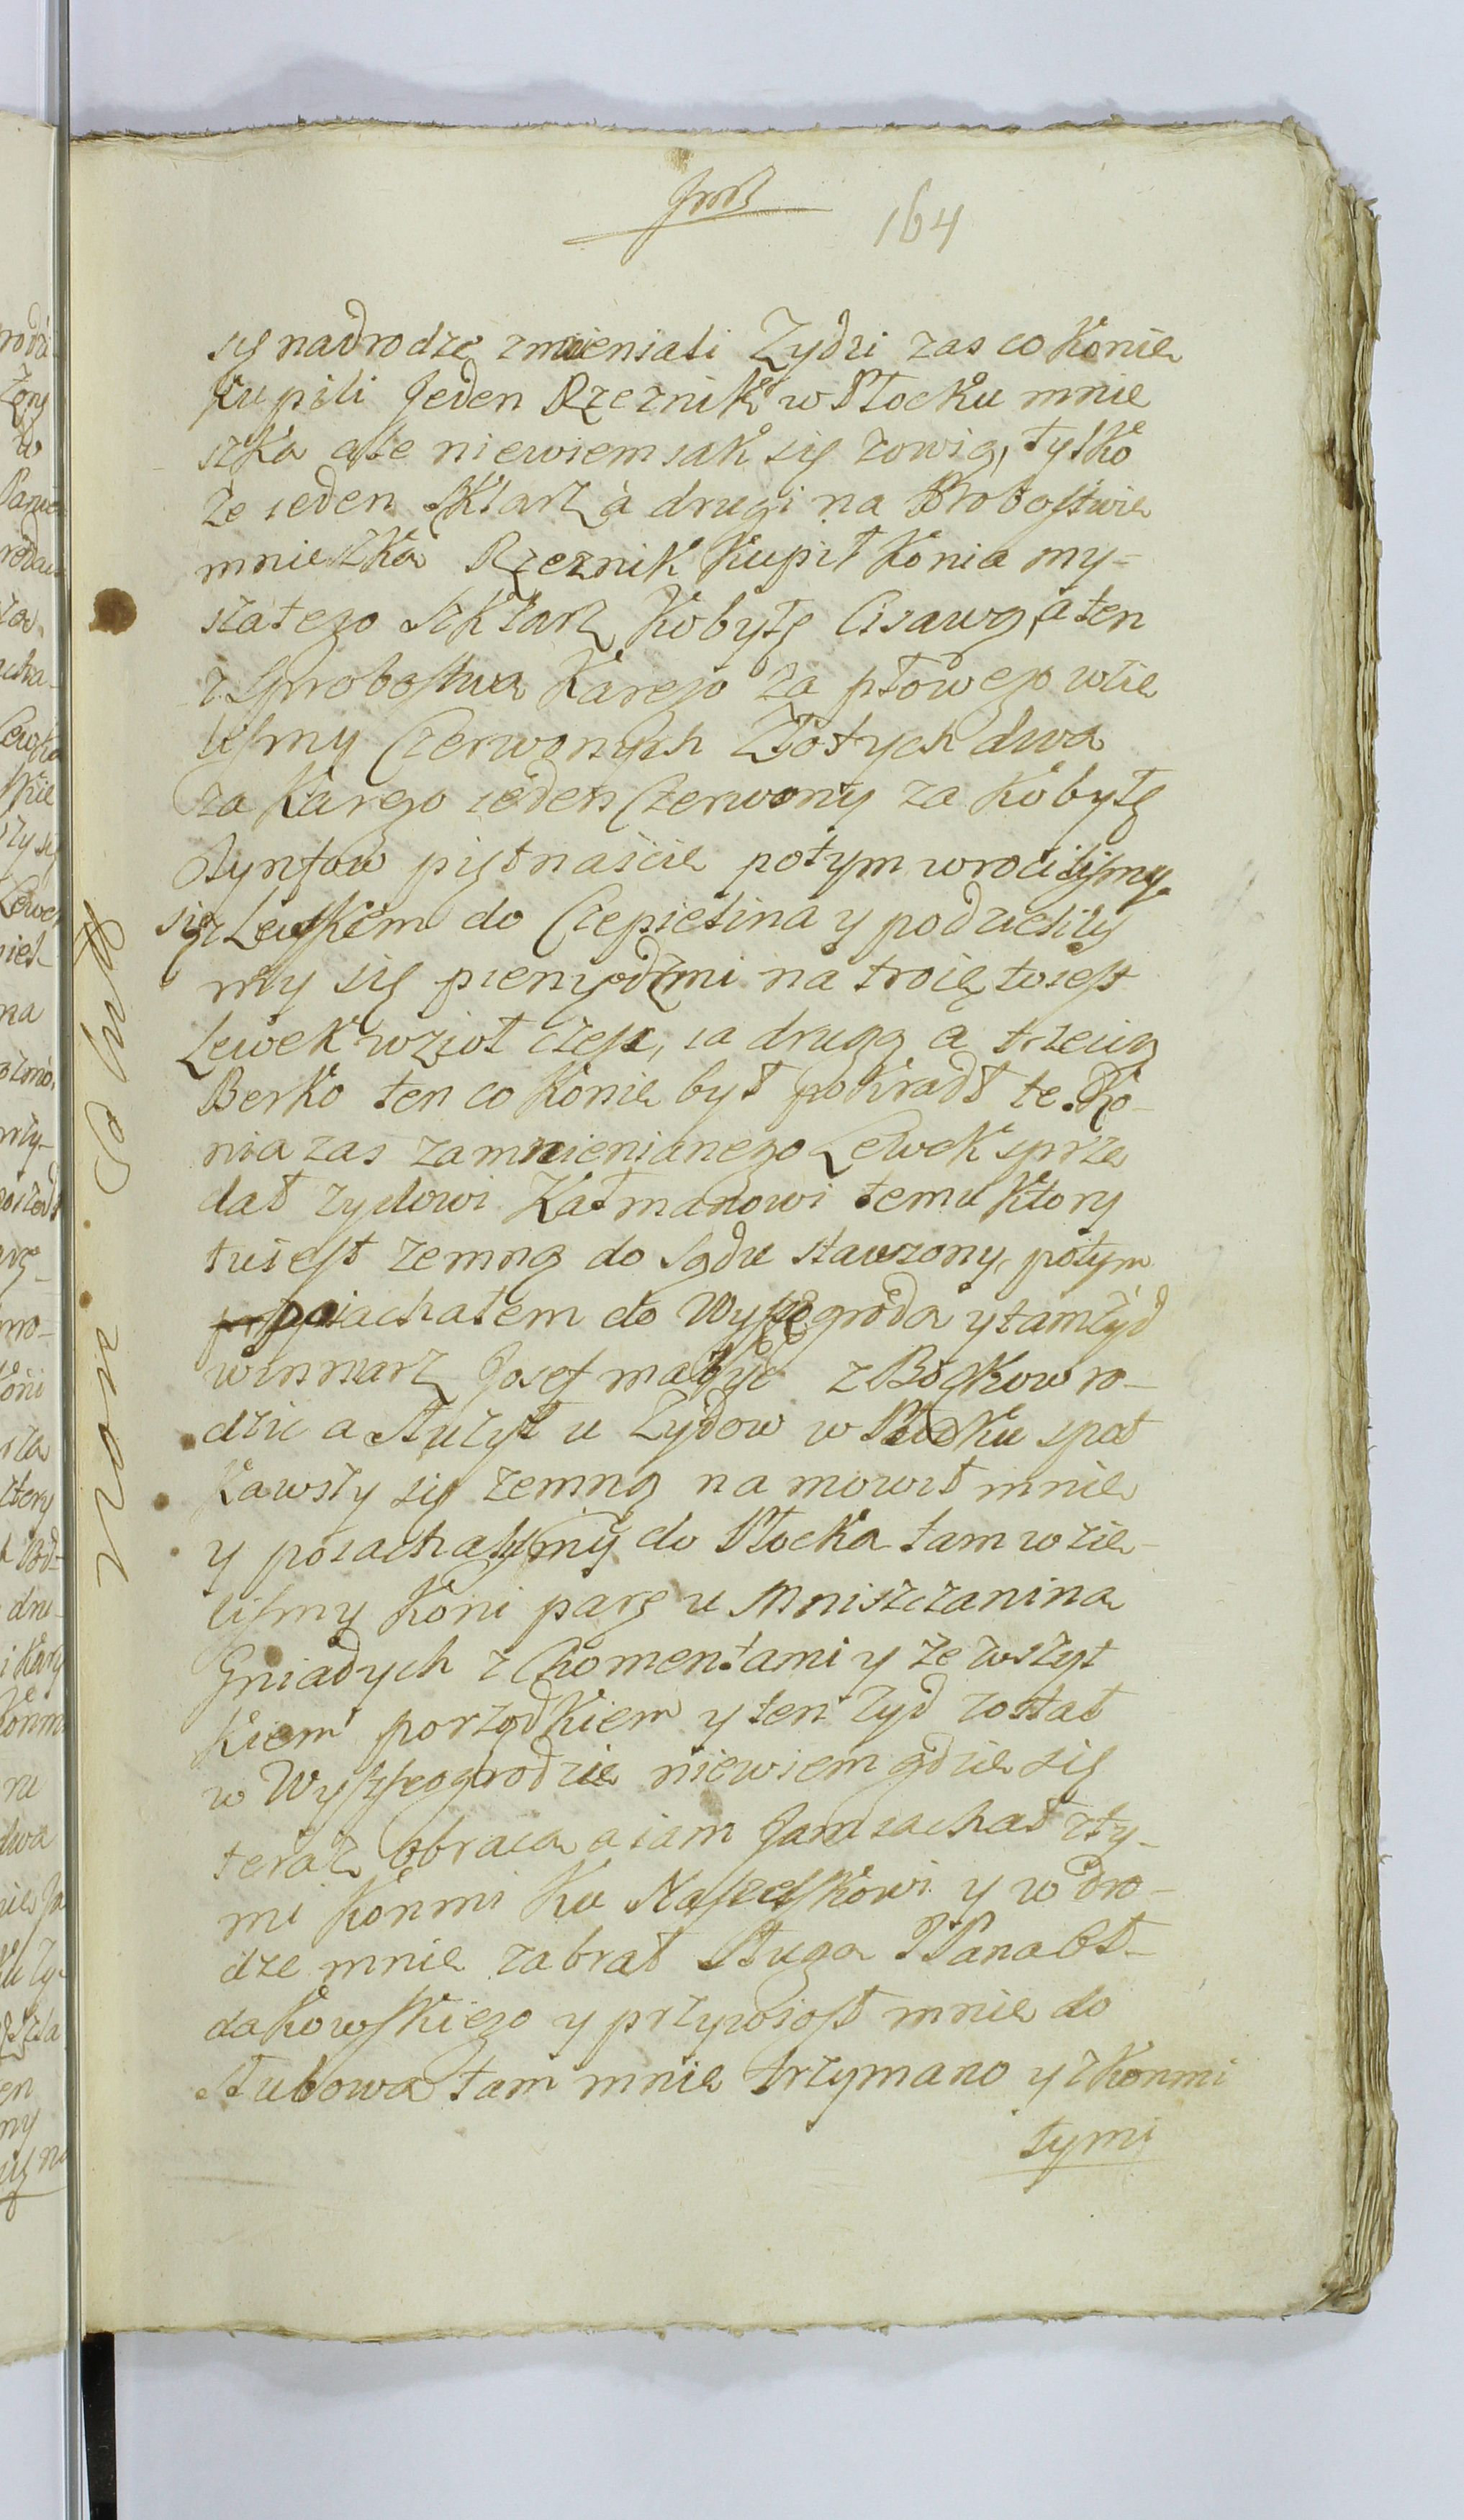 164
się nadrodze zmieniali Zydzi zas co konie
kupili Jeden Rzeznik w Płocku mnie
szka ale niewiem iak się zowią, tylko
że ieden Sklarz à drugi na Probostwie
mnieszka Rzeznik kupił konia my-
szatego Szklarz kobyłę Cisawą, a ten
z Sprobostwa Karego za płowego wzie
lismy Czerwonych Złotych dwa
za Karego ieden Czerwony za kobyłę
Tynfow piętnaście potym wrocilismy
się z Lewkiem do Czepielina y podzielilis
my się pieniędzmi na troię to iest
Lewek wzioł częsc, ia drugą a trzecią
Berko ten co konie był pokradł te. Ko-
nia zas zamienianego Lewek sprze
dał zydowi Kałmanowi temu ktory
tu iest zemną do Sądu stawiony, potym
poiachałem do Wyszogroda y tam żyd
winniarz Josef małyie z Bogkow ro-
dzic a służył u Zydow w Płocku spot
kawszy się zemną na mowił mnie
y poiachalismy do Płocka tam wzie-
lismy koni parę u Mniszczanina
Gniadych z Chomentami y ze wszyt
kiem porządkiem y ten żyd został
w Wyszogrodzie niewiem gdzie się
teraz obraca a iam Jam iachał z ty-
mi konmi ku Nasielskowi y w dro-
dze mnie zabrał sługa JPana Oł-
dakowskiego y przywiosł mnie do
Słubowa tam mnie trzymano y z konmi
tymi